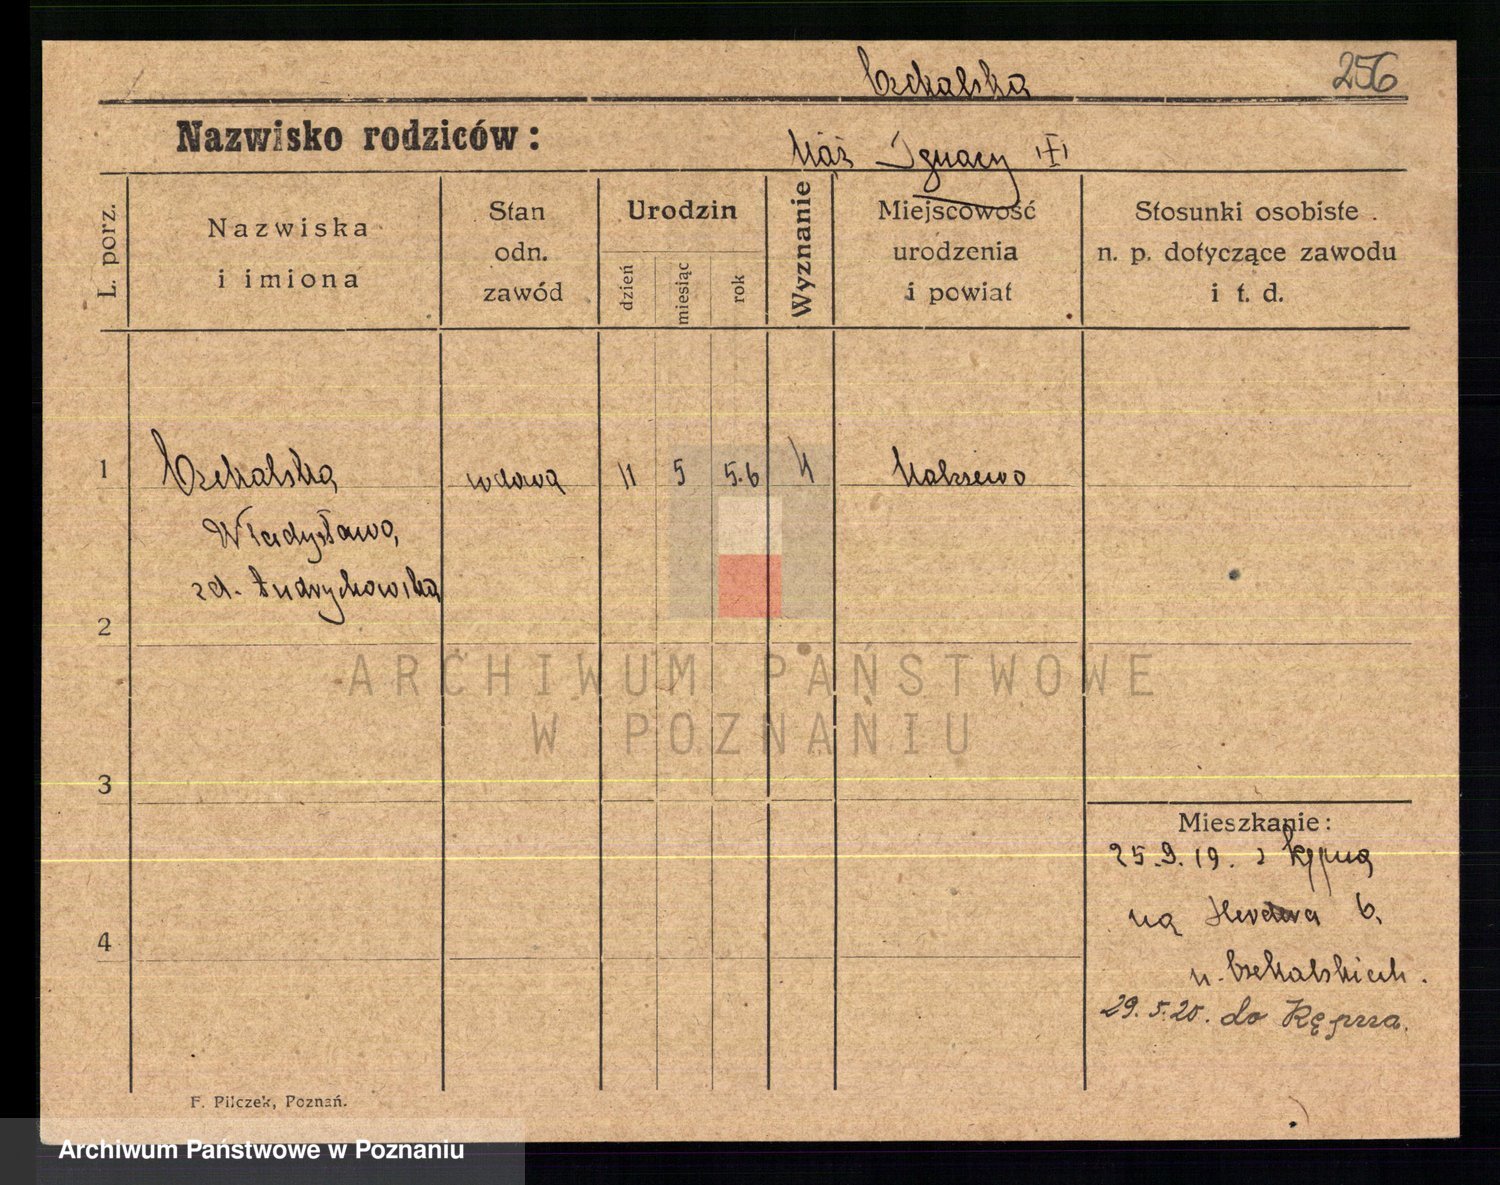 Czekalska
256
Nazwisko rodziców:
Mąż Ignacy
L. porz.
Nazwiska
i imiona
Stan
odn.
zawód
Urodzin
dzień
miesiąc
rok
Wyznanie
Miejscowość
urodzenia
i powiat
Stosunki osobiste
n. p. dotyczące zawodu
i t. d.
1
Czekalska wdowa 11 5 56
Władysława,
2
3
Mieszkanie:
25.9.19. z Kępna
na 6.
u. Czekalskich.
29.5.20. do Kępna.
4
F. Pilczek, Poznań.
ARCHIWUM PAŃSTWOWE
W POZNANIU
Archiwum Państwowe w Poznaniu